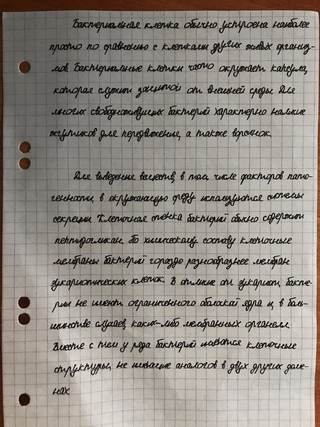 Бактериальная клетка обычно устроена наиболее
просто по сравнению с клетками других живых организ-
мов. Бактериальные клетки часто окружает капсула,
которая служит защитой от внешней среды. Для
многих свободноживущих бактерий характерно наличие
жгутиков для передвижения, а также ворсинок.
Для выведения веществ, в том числе факторов пато-
генности, в окружающую среду используются системы
секреции. Клеточная стенка бактерий обычно содержит
пептидогликан. По химическому составу клеточные
мембраны бактерий гораздо разнообразнее мембран
эукариотических клеток. В отличие от эукариот, бакте-
рии не имеют ограниченного оболочкой ядра и, в боль-
шинстве случаев, каких-либо мембранных органелл.
Вместе с тем у ряда бактерий имеются клеточные
структуры, не имевшие аналогов в двух других доме-
нах